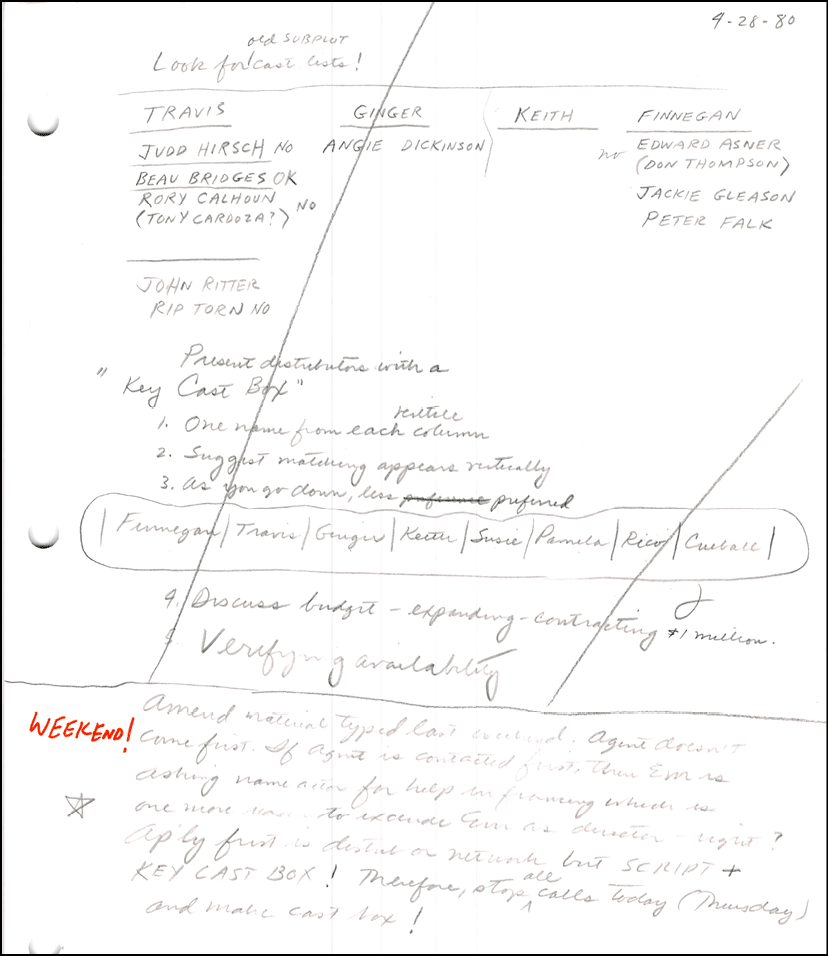 4-28-80
old SUBPLOT
Look for cast lists!
TRAVIS GINGER KEITH FINNEGAN
JUDD HIRSCH NO ANGIE DICKINSON no EDWARD ASNER
(DON THOMPSON)
BEAU BRIDGES OK
RORY CALHOUN NO JACKIE GLEASON
(TONY CARDOZA?) PETER FALK
JOHN RITTER
RIP TORN NO
Present distributors with a
"Key Cast Box"
1. One name from each column
2. Suggest matching appears vertically
3. As you go down, less preferred
| Finnegan | Travis | Ginger | Keith | Susie | Pamela | Rico | Cueball |
4. Discuss budget - expanding - contracting $1 million.
5 Verifying availability
WEEKEND!
Amend material typed last weekend. Agent doesn't
come first. If Agent is contacted first, then Em is
asking name actor for help in financing which is
one more to exclude Em as director - right?
Aply first is distrib or network but SCRIPT +
KEY CAST BOX! Therefore, stop all calls today (Thursday)
and make cast box!